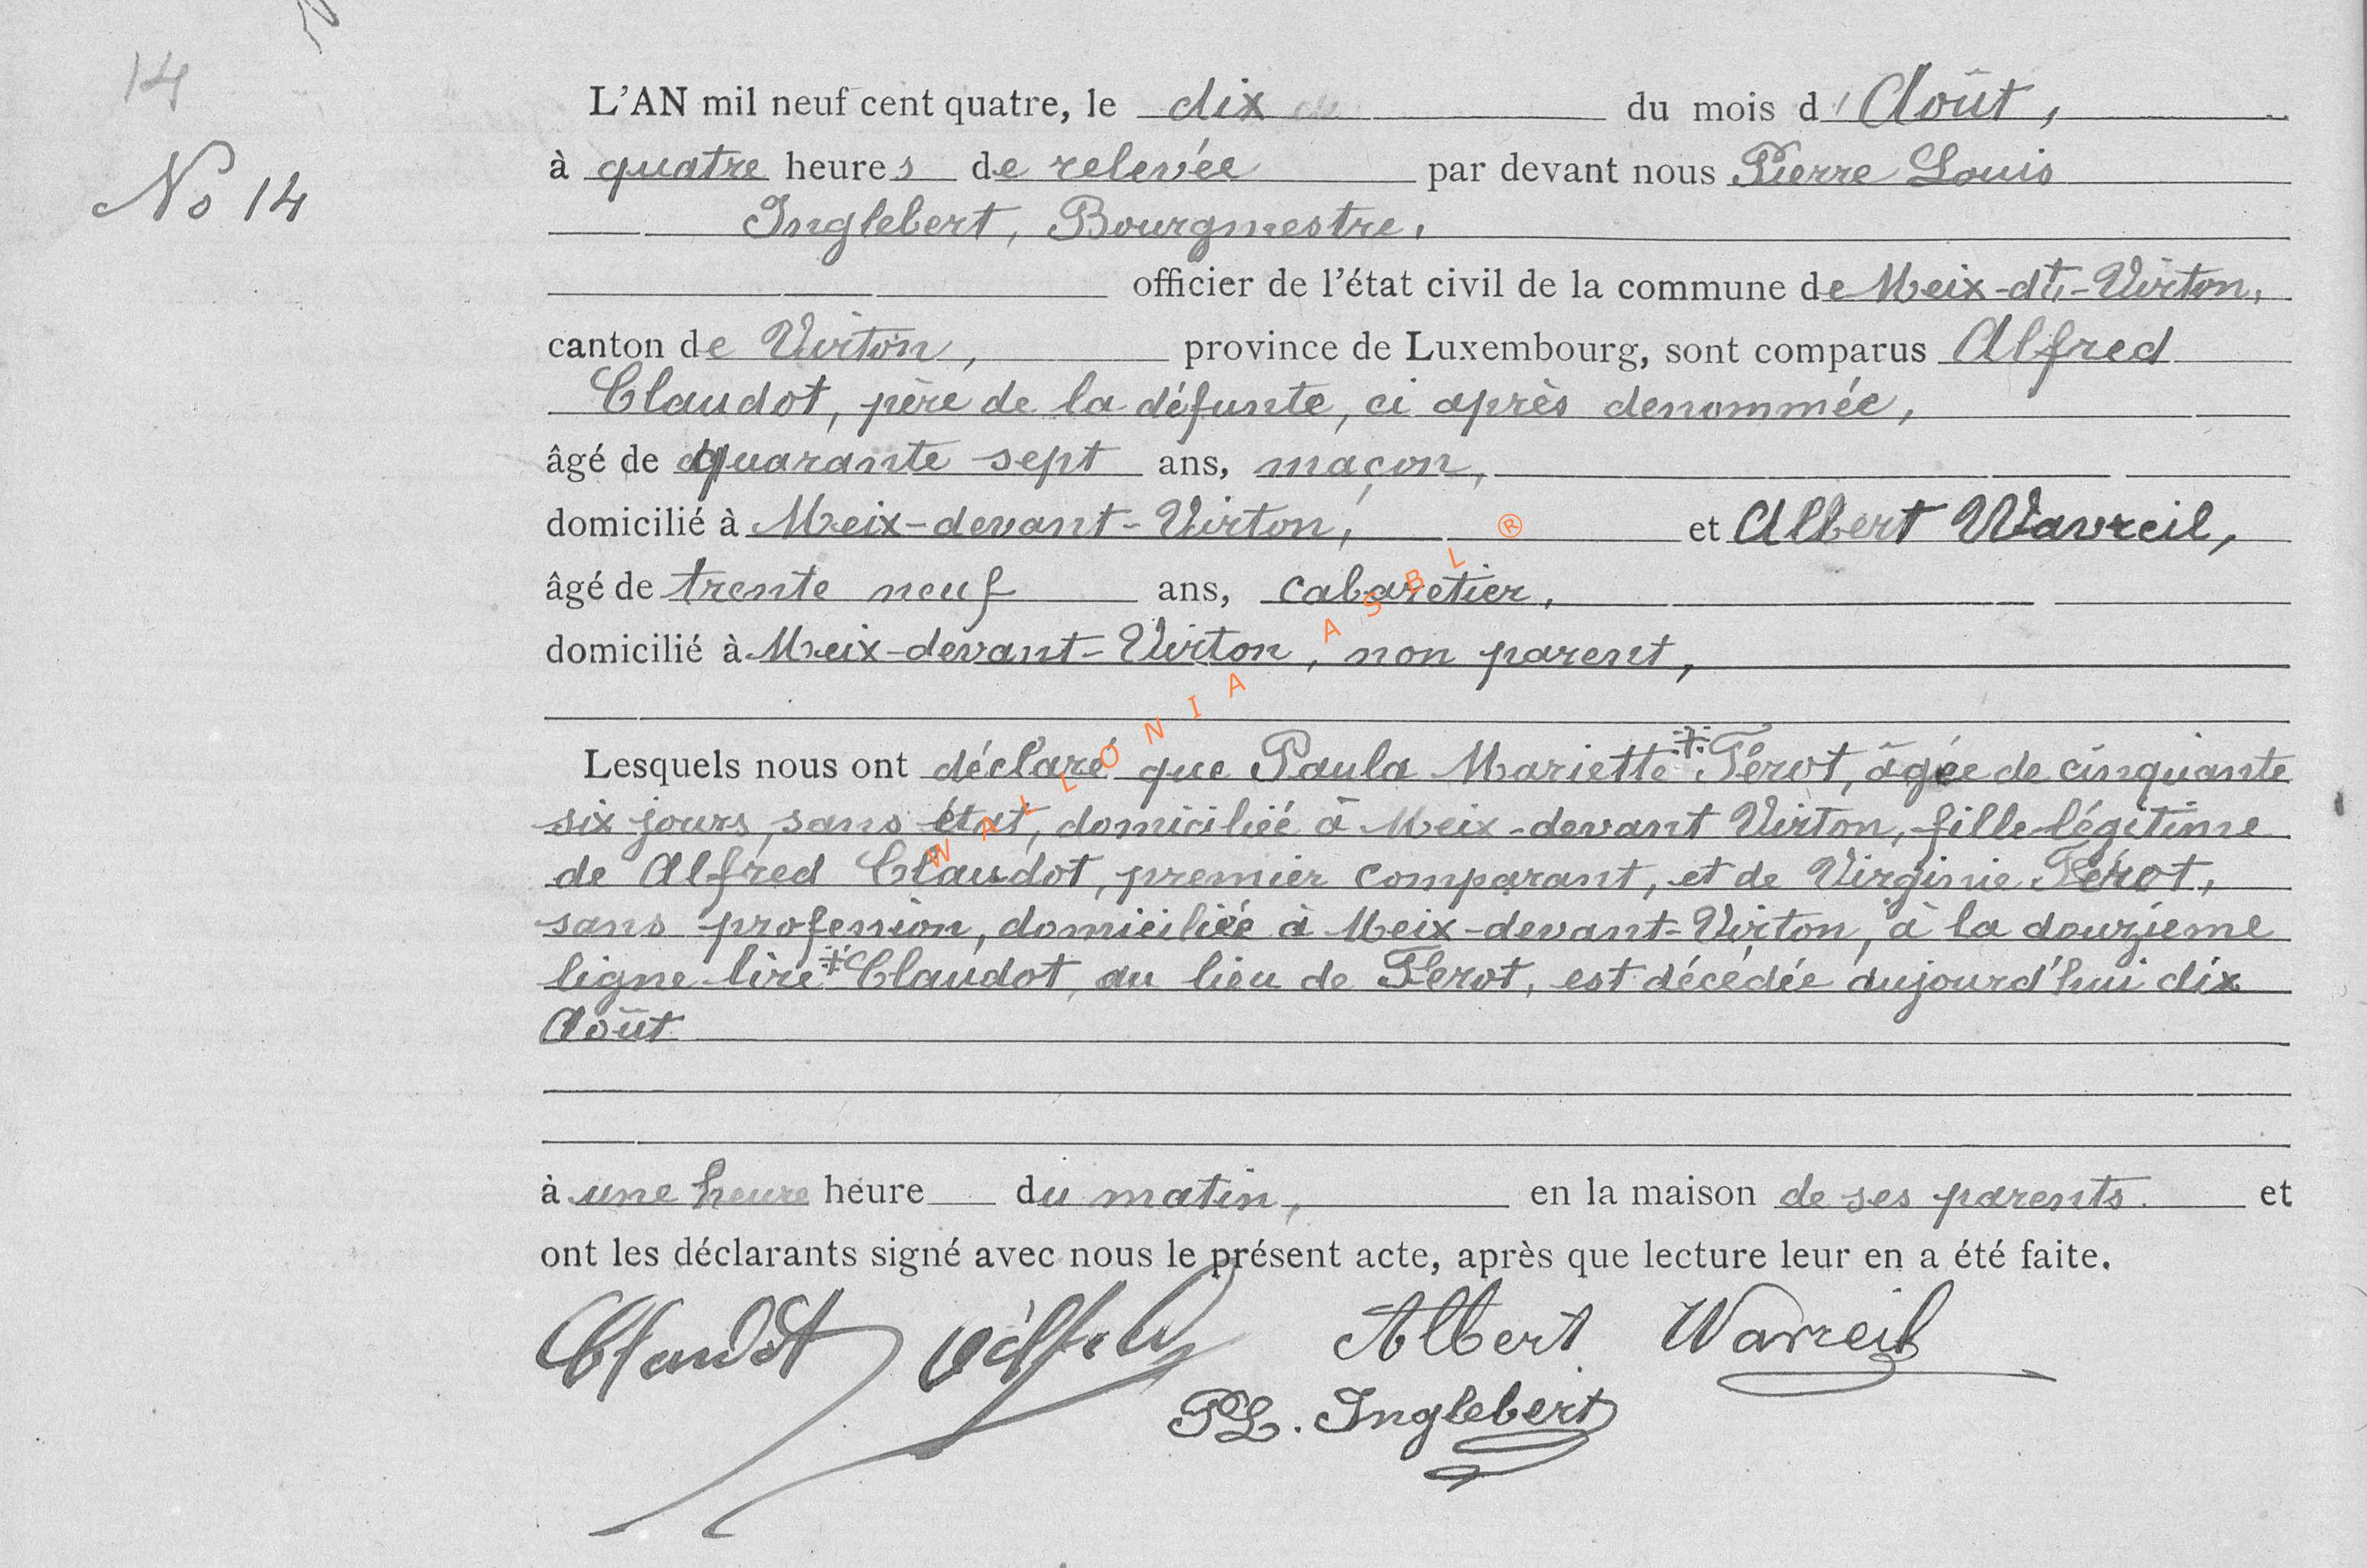 14
No 14
L'AN mil neuf cent quatre, le dix du mois d'Août,
à quatre heures de relevée par devant nous Pierre Louis
Inglebert, Bourgmestre,
officier de l'état civil de la commune de Meix-dt-Virton,
canton de Virton, province de Luxembourg, sont comparus Alfred
Claudot, père de la défunte, ci après denommée,
âgé de quarante sept ans, maçon,
domicilié à Meix-devant-Virton, et Albert Wavreil,
âgé de trente neuf ans, cabaretier,
domicilié à Meix-devant-Virton, non parent,
Lesquels nous ont déclaré que Paula Mariette ‡ Férot, âgée de cinquante
six jours, sans état, domiciliée à Meix-devant Virton, fille légitime
de Alfred Claudot, premier comparant, et de Virginie Férot,
sans profession, domiciliée à Meix-devant-Virton, à la douzième
ligne lire ‡ Claudot, au lieu de Férot, est décédée aujourd'hui dix
Août
à une heure heure du matin, en la maison de ses parents. et
ont les déclarants signé avec nous le présent acte, après que lecture leur en a été faite.
Claudot Alfred Albert Wavreil
PL. Inglebert
WALLONIA ASBL ®